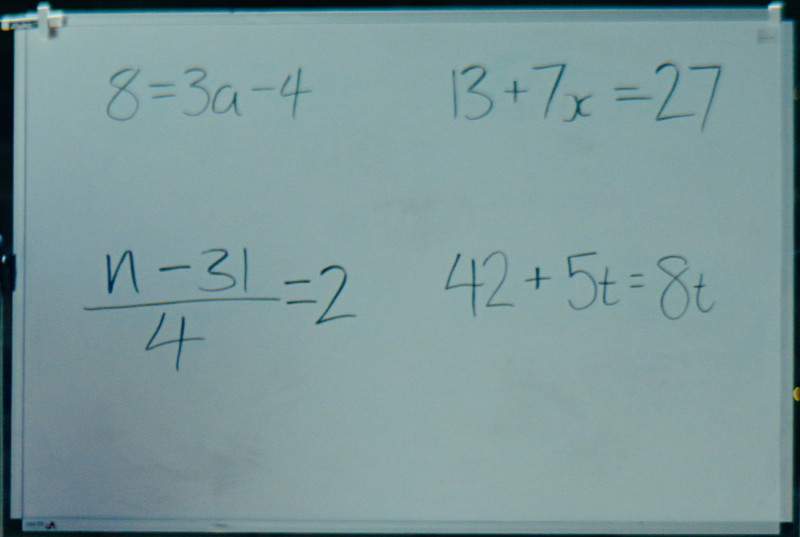 8=3a-4
13+7x=27
n-31
4
=2
42+5t=8t